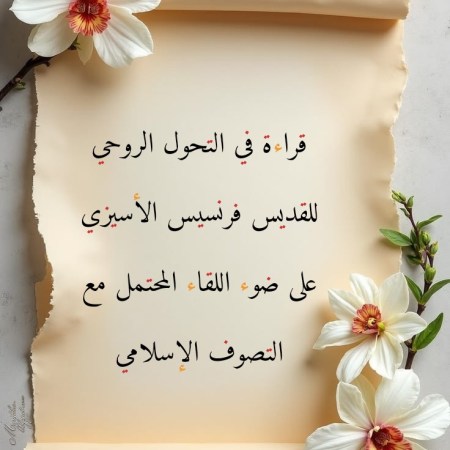 قراءة في التحول الروحي
للقديس فرنسيس الأسيزي
على ضوء اللقاء المحتمل مع
التصوف الإسلامي